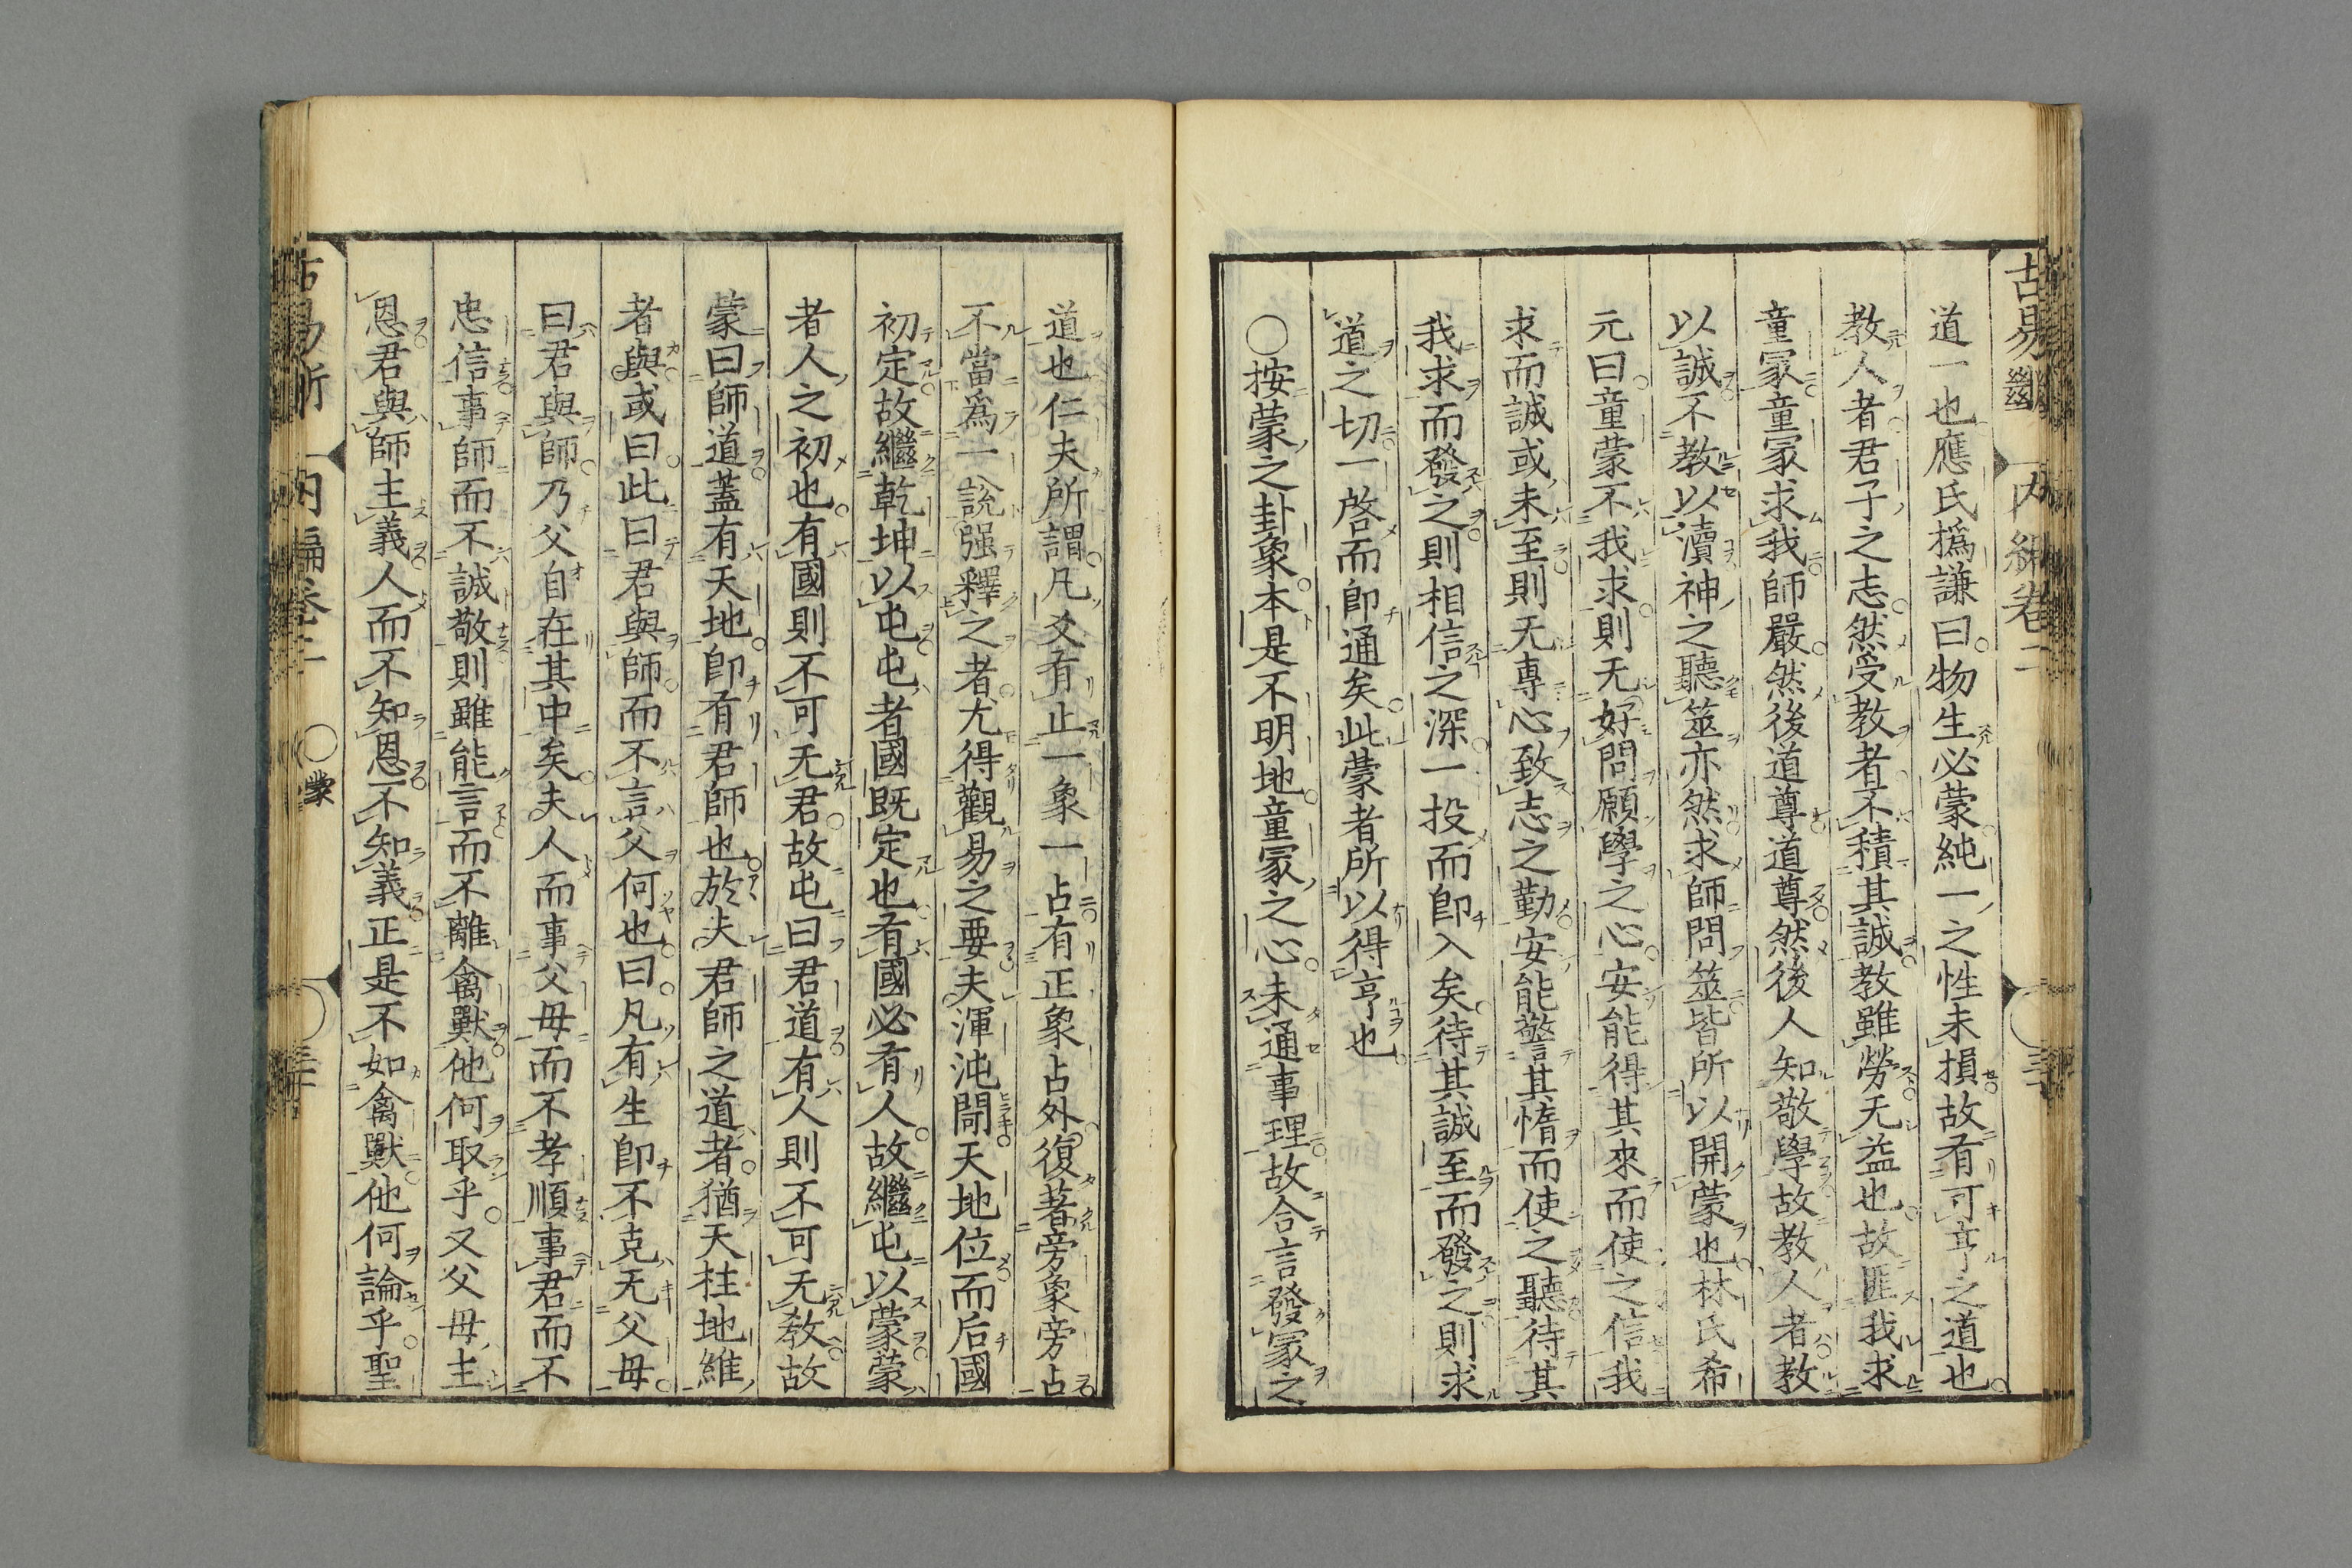 古易斷 内編卷二
道一也應氏撝謙曰物生必蒙純一之性未損故有可亨之道也
教人者君子之志然受教者不積其誠教雖勞无益也故匪我求
童冡童冡求我師嚴然後道尊道尊然後人知敬學故教人者教
以誠不教以瀆神之聽筮亦然求師問筮皆所以開蒙也林氏希
元曰童蒙不我求則无好問願學之心安能得其來而使之信我
求而誠或未至則无專心致志之勤安能警其惰而使之聽待其
我求而發之則相信之深一投而卽入矣待其誠至而發之則求
道之切一啓而卽通矣此蒙者所以得亨也
○按蒙之卦象本是不明地童冡之心未通事理故合言發冡之
道也仁夫所謂凡爻有止一象一占有正象占外復著旁象旁占
不當爲一說强釋之者尤得觀易之要夫渾沌闢天地位而后國
初定故繼乾坤以屯屯者國既定也有國必有人故繼屯以蒙蒙
者人之初也有國則不可无君故屯曰君道有人則不可无教故
蒙曰師道蓋有天地卽有君師也於夫君師之道者猶天柱地維
者與或曰此曰君與師而不言父何也曰凡有生卽不克无父母
曰君與師乃父自在其中矣夫人而事父母而不孝順事君而不
忠信事師而不誠敬則雖能言而不離禽獸他何取乎又父母主
恩君與師主義人而不知恩不知義正是不如禽獸他何論乎聖
古易斷 内編卷二 ○蒙